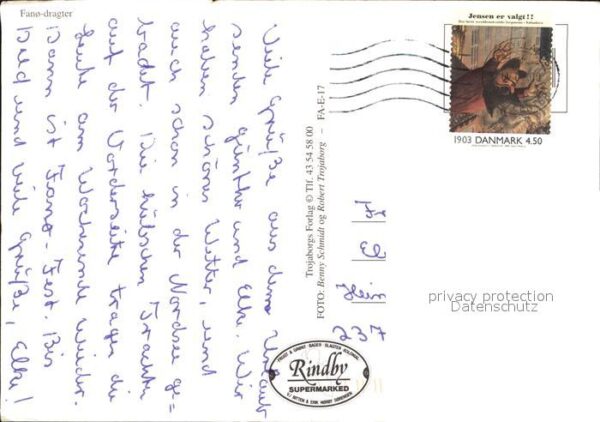 Fanø-dragter
Viele Grüße aus dem Urlaub
senden Günther und Elke. Wir
haben schönes Wetter, und
auch schon in der Nordsee ge=
badet. Die hübschen Trachten
auf der Vorderseite tragen die
Leute am Wochenende wieder.
Dann ist Fanø-Fest. Bis
Bald und viele Grüße, Elke!
Trojaborgs Forlag © Tlf. 43 54 58 00 – FA-E-17
FOTO: Benny Schmidt og Robert Trojaborg
Jensen er valgt!!
1903 DANMARK 4.50
237
privacy protection
Datenschutz
Rindby
SUPERMARKED